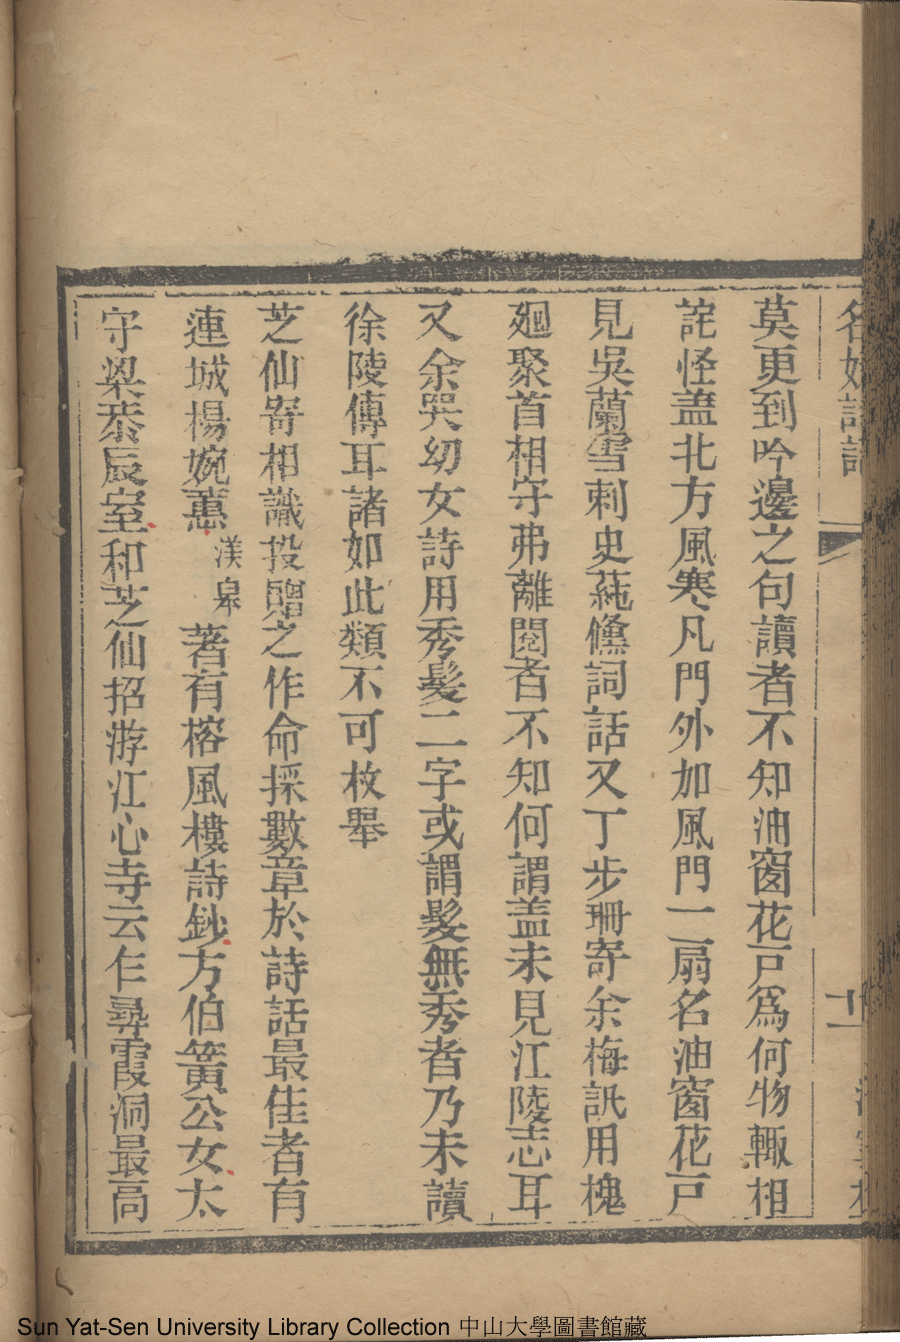 名媛詩話
十一
莫更到吟邊之句讀者不知油窗花戸爲何物輙相
詫怪蓋北方風寒凡門外加風門一扇名油窗花戸
見吳蘭雪刺史蒓儵詞話又丁步珊寄余梅訊用槐
𢌞聚首相守弗離閱者不知何謂盖未見江陵志耳
又余哭幼女詩用秀髮二字或謂髮無秀者乃未讀
徐陵傳耳諸如此類不可枚舉
芝仙寄相識投贈之作命採數章於詩話最佳者有
連城楊婉蕙渼皋著有榕風樓詩鈔方伯簧公女太
守梁恭辰室和芝仙招游江心寺云乍尋霞洞最高
Sun Yat-Sen University Library Collection 中山大學圖書館藏